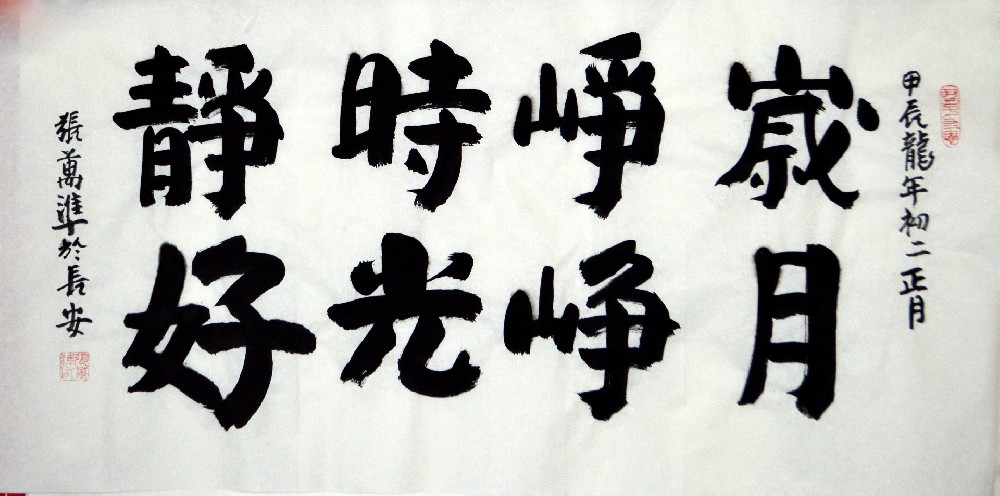 甲辰龍年初二正月
嵗月
崢崢
時光
靜好
張萬準於長安